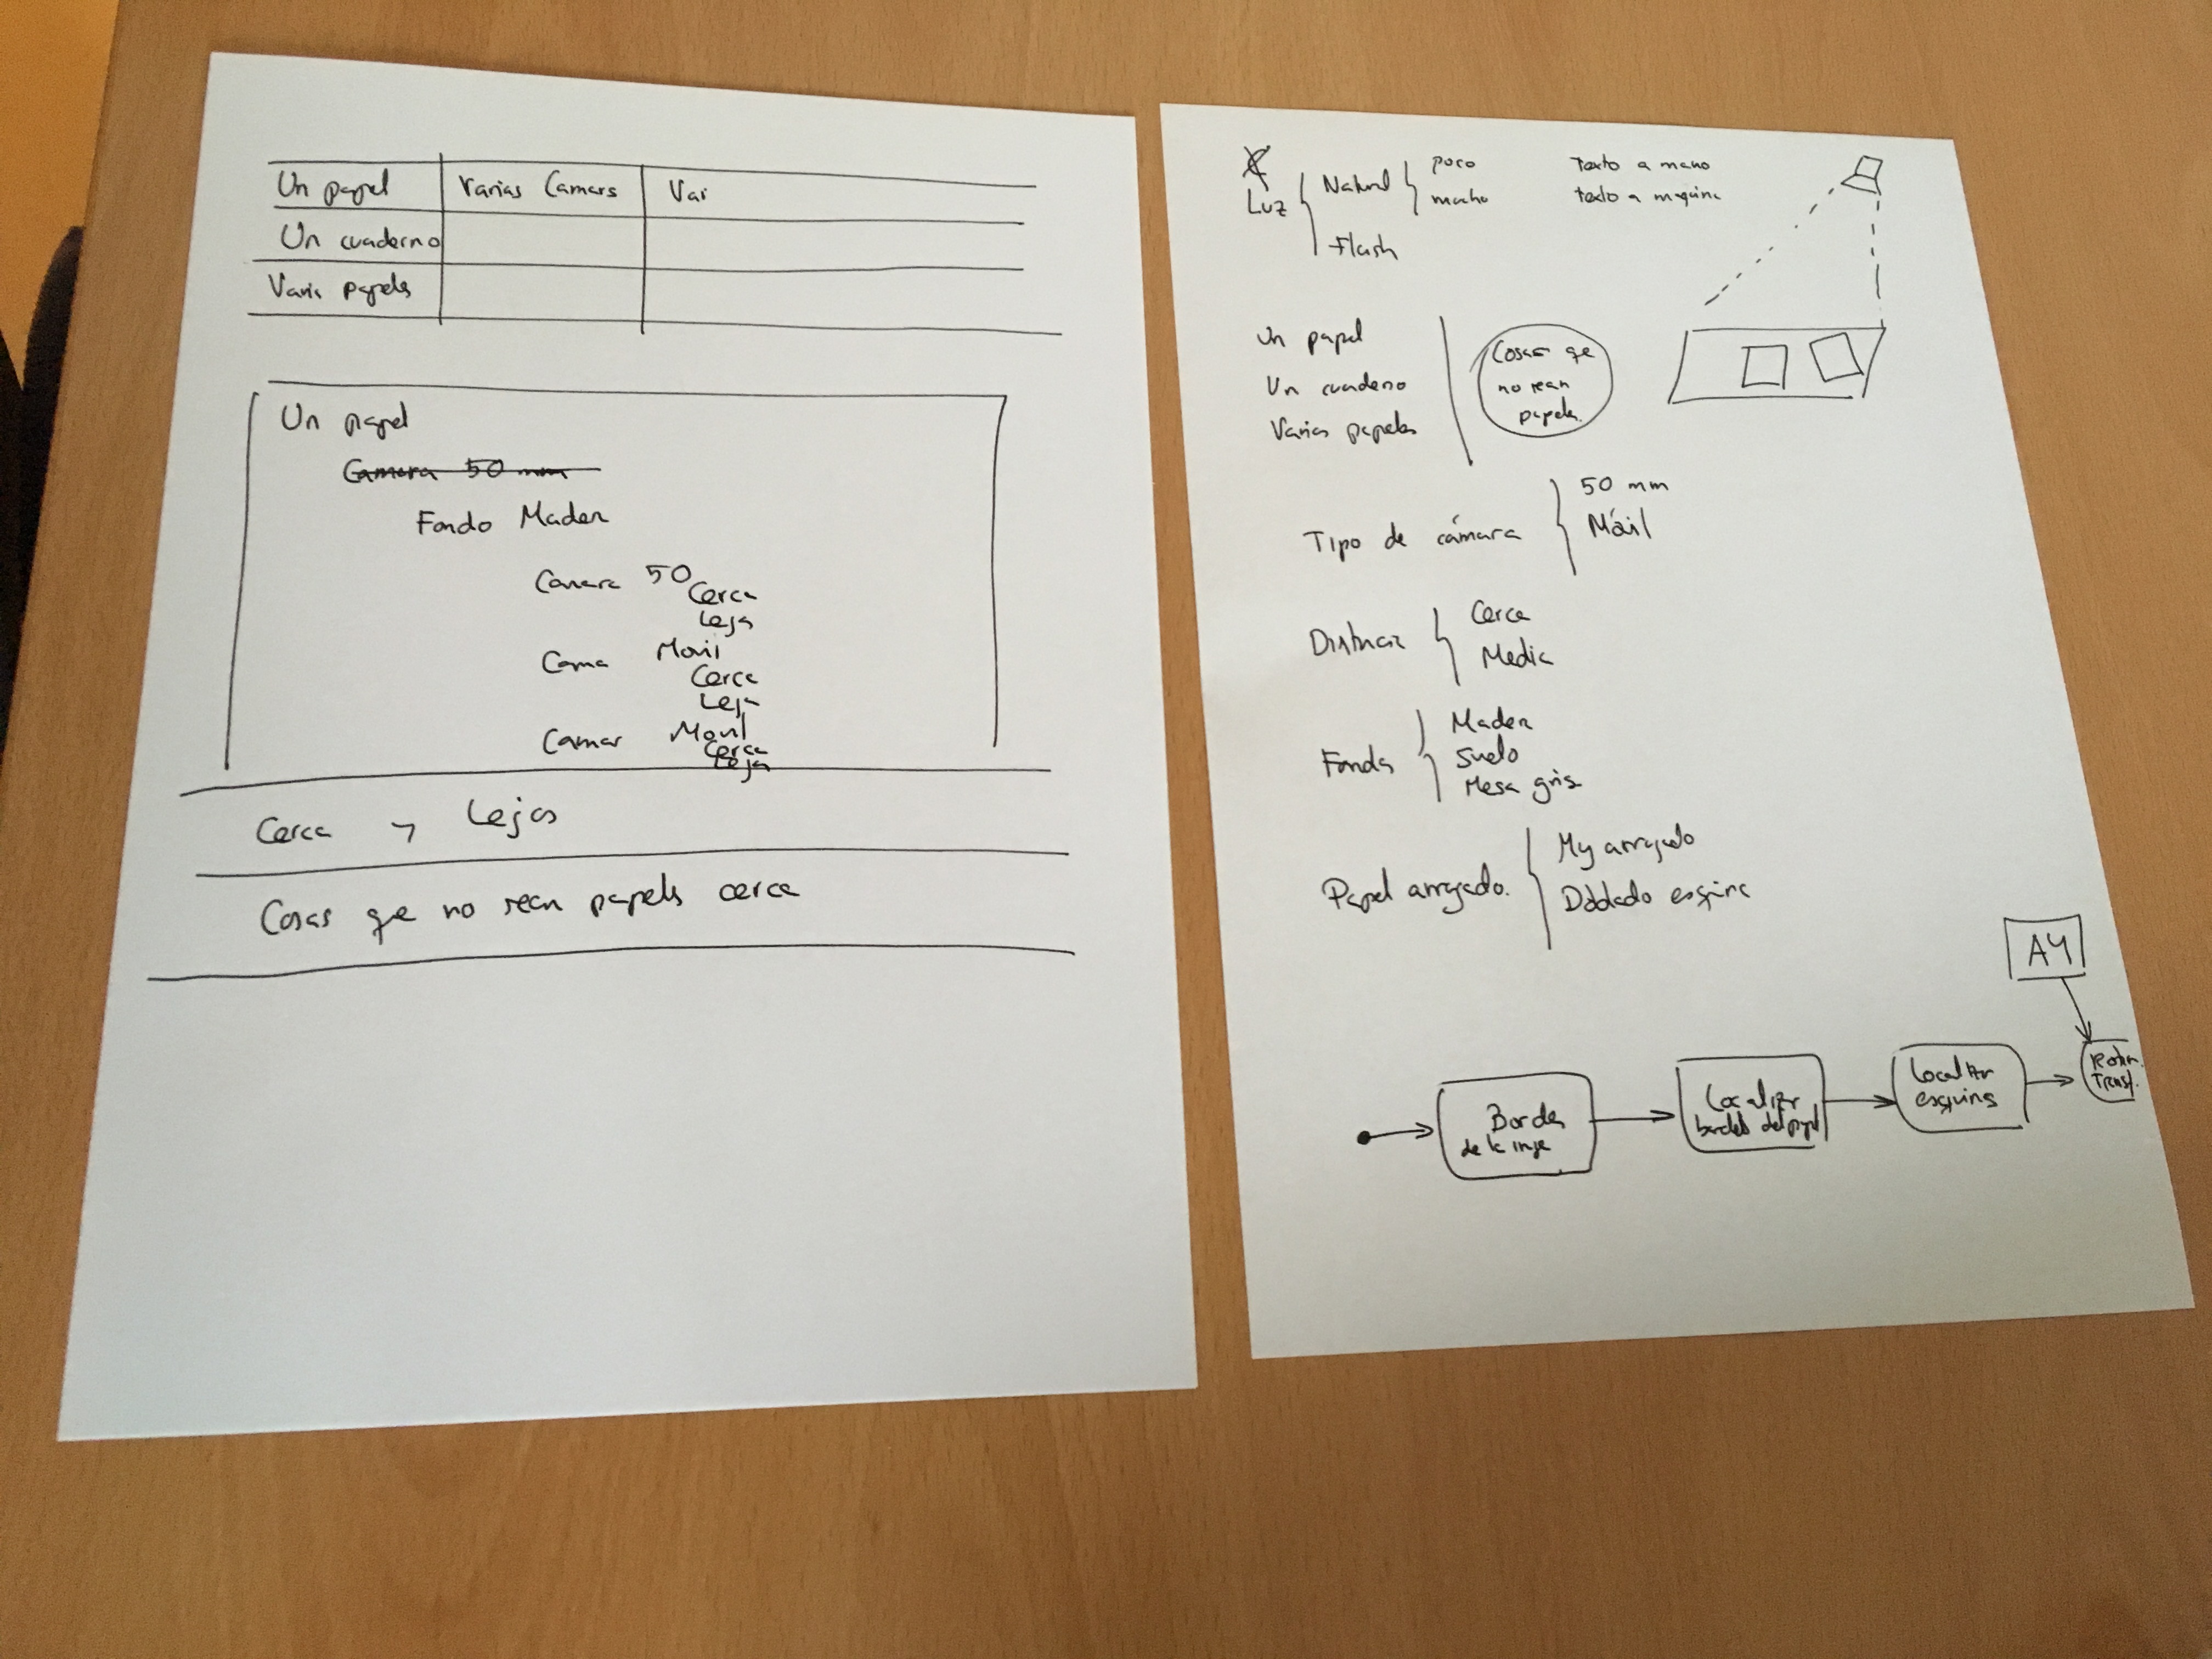 Un papel Varias Camers Var
Un cuaderno
Varis papels
Un papel
Camara 50 mm
Fondo Mader
Camara 50 Cerca
Lejs
Cama Movil Cerca
Leja
Camar Movil Cerca
Lejos
Cerca y Lejos
Cosas qe no sean papels cerca
Luz Natural poco
mucho
Flash
Texto a mano
texto a maquina
Un papel
Un cuaderno
Varios papeles
Cosas qe
no sean
papeles
Tipo de cámara 50 mm
Móvil
Distncia Cerca
Media
Fondo Madera
Suelo
Mesa gris
Papel arrugado. My arrugado
Doblado esquina
A4
Bordes
de la imge
Localizr
bordes del papel
Localizr
esquins
Transf.